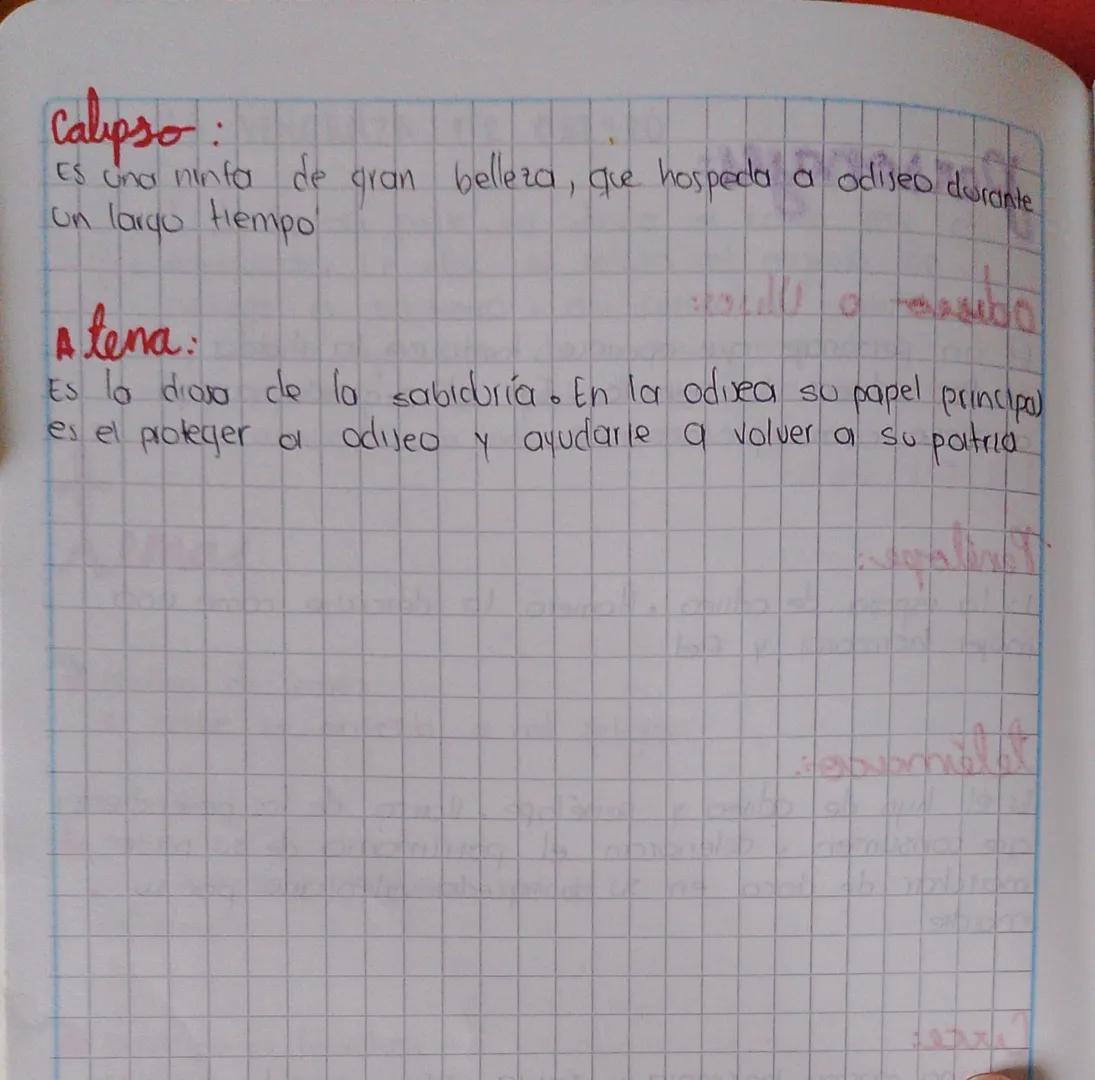 Calipso:
Es una ninfa de gran belleza, que hospeda a odiseo durante
un largo tiempo
Atena:
Es la diosa de la sabiduría. En la odisea su papel principal
es el proteger a odiseo y ayudarle a volver a su patria